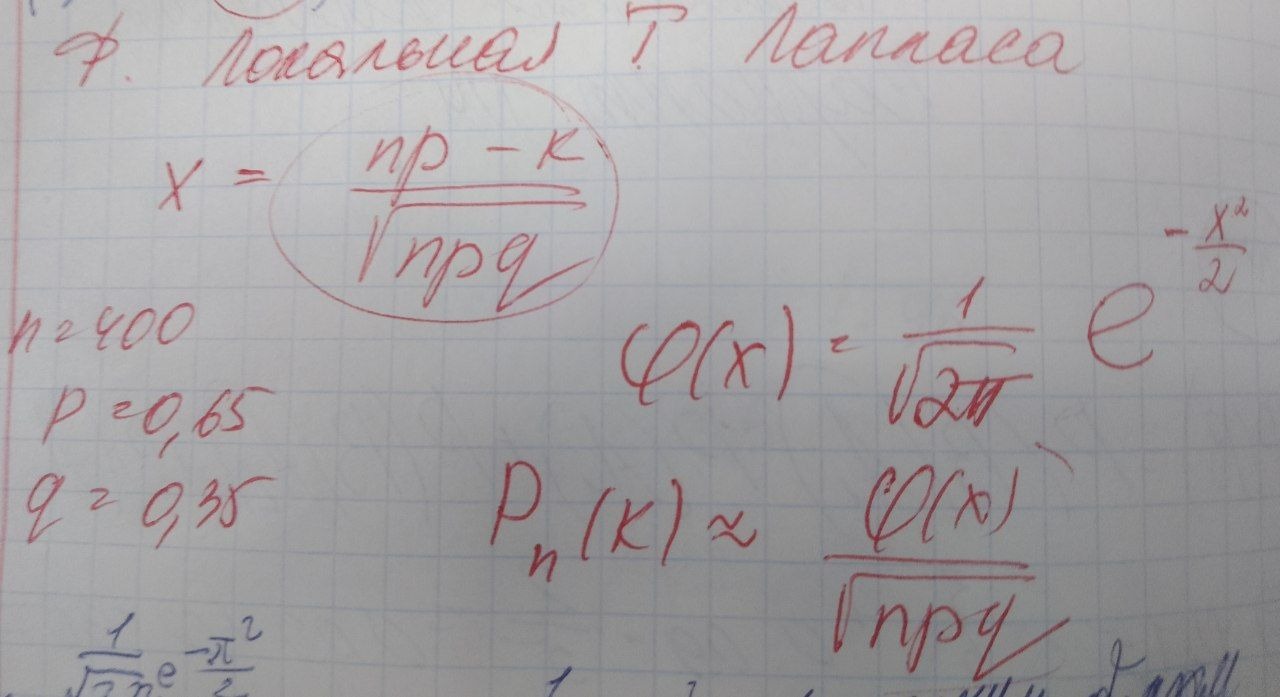 Ф. Локальная Т Лапласа
x = (np - k) / √npq
n = 400
p = 0,65
q = 0,35
φ(x) = 1/√2π e^(-x²/2)
Pn(k) ≈ φ(x) / √npq